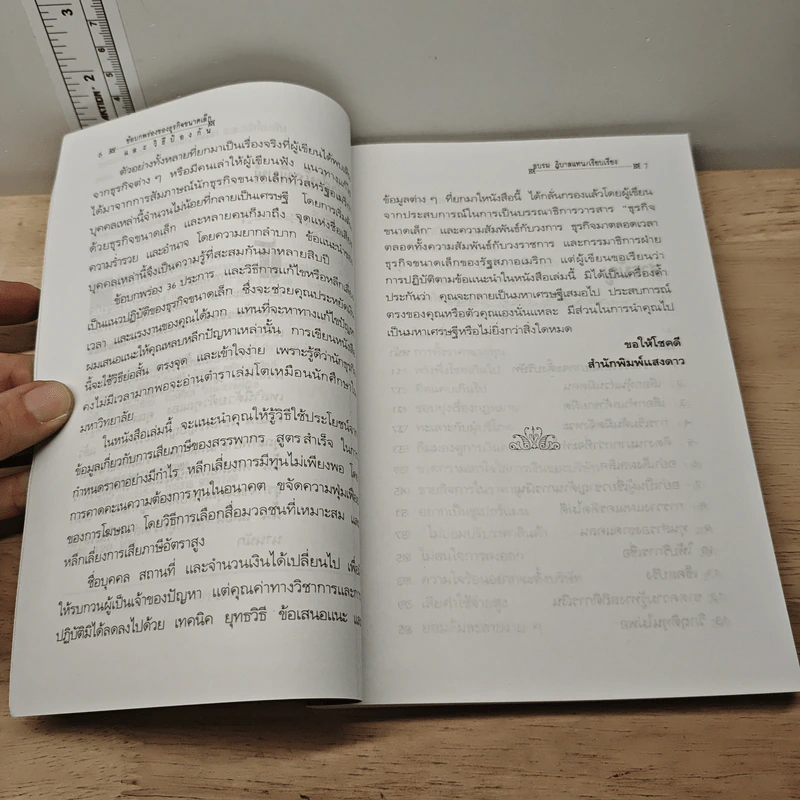 ข้อบกพร่องของธุรกิจขนาดเล็ก
6 และวิธีป้องกัน
ตัวอย่างทั้งหลายที่ยกมาเป็นเรื่องจริงที่ผู้เขียนได้พบเห็น
จากธุรกิจต่าง ๆ หรือมีคนเล่าให้ผู้เขียนฟัง แนวทางแก้ไข
ได้มาจากการสัมภาษณ์นักธุรกิจขนาดเล็กทั่วสหรัฐอเมริกา
บุคคลเหล่านี้จำนวนไม่น้อยที่กลายเป็นเศรษฐี โดยการเริ่มต้น
ด้วยธุรกิจขนาดเล็ก และหลายคนก็มาถึง จุดแห่งชื่อเสียง
ความร่ำรวย และอำนาจ โดยความยากลำบาก ข้อแนะนำของ
บุคคลเหล่านี้จึงเป็นความรู้ที่สะสมกันมาหลายสิบปี
ข้อบกพร่อง 36 ประการ และวิธีการแก้ไขหรือหลีกเลี่ยง
เป็นแนวปฏิบัติของธุรกิจขนาดเล็ก ซึ่งจะช่วยคุณประหยัดเงิน
เวลา และแรงงานของคุณได้มาก แทนที่จะหาทางแก้ไขปัญหา
ผมเสนอแนะให้คุณหลบหลีกปัญหาเหล่านั้น การเขียนหนังสือ
นี้จะใช้วิธีย่อสั้น ตรงจุด และเข้าใจง่าย เพราะรู้ดีว่านักธุรกิจ
คงไม่มีเวลามากพอจะอ่านตำราเล่มโตเหมือนนักศึกษาใน
มหาวิทยาลัย
ในหนังสือเล่มนี้ จะแนะนำคุณให้รู้วิธีใช้ประโยชน์จาก
ข้อมูลเกี่ยวกับการเสียภาษีของสรรพากร สูตรสำเร็จ ในการ
กำหนดราคาอย่างมีกำไร หลีกเลี่ยงการมีทุนไม่เพียงพอ โดย
การคาดคะเนความต้องการทุนในอนาคต ขจัดความฟุ่มเฟือย
ของการโฆษณา โดยวิธีการเลือกสื่อมวลชนที่เหมาะสม และ
หลีกเลี่ยงการเสียภาษีอัตราสูง
ชื่อบุคคล สถานที่ และจำนวนเงินได้เปลี่ยนไป เพื่อมิ
ให้รบกวนผู้เป็นเจ้าของปัญหา แต่คุณค่าทางวิชาการและการ
ปฏิบัติมิได้ลดลงไปด้วย เทคนิค ยุทธวิธี ข้อเสนอแนะ และ
อบรม ฎิบาลแทน/เรียบเรียง 7
ข้อมูลต่าง ๆ ที่ยกมาในหนังสือนี้ ได้กลั่นกรองแล้วโดยผู้เขียน
จากประสบการณ์ในการเป็นบรรณาธิการวารสาร "ธุรกิจ
ขนาดเล็ก" และความสัมพันธ์กับวงการ ธุรกิจมาตลอดเวลา
ตลอดทั้งความสัมพันธ์กับวงราชการ และกรรมาธิการฝ่าย
ธุรกิจขนาดเล็กของรัฐสภาอเมริกา แต่ผู้เขียนขอเรียนว่า
การปฏิบัติตามข้อแนะนำในหนังสือเล่มนี้ มิได้เป็นเครื่องค้ำ
ประกันว่า คุณจะกลายเป็นมหาเศรษฐีเสมอไป ประสบการณ์
ตรงของคุณหรือตัวคุณเองนั่นแหละ มีส่วนในการนำคุณไป
เป็นมหาเศรษฐีหรือไม่ยิ่งกว่าสิ่งใดหมด
ขอให้โชคดี
สำนักพิมพ์แสงดาว